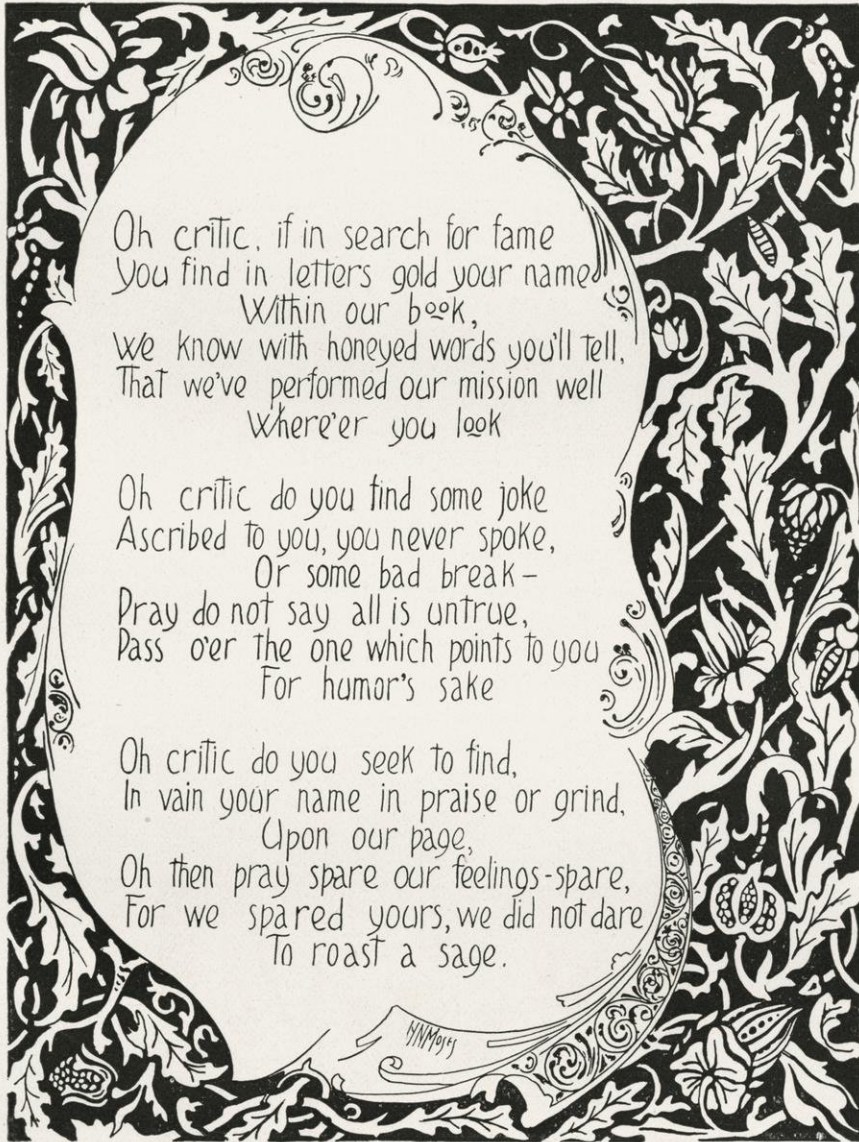 Oh critic, if in search for fame
You find in letters gold your name
Within our book,
We know with honeyed words you'll tell,
That we've performed our mission well
Where'er you look
Oh critic do you find some joke
Ascribed to you, you never spoke,
Or some bad break-
Pray do not say all is untrue,
Pass o'er the one which points to you
For humor's sake
Oh critic do you seek to find,
In vain your name in praise or grind,
Upon our page,
Oh then pray spare our feelings-spare,
For we spared yours, we did not dare
To roast a sage.
HNMoses